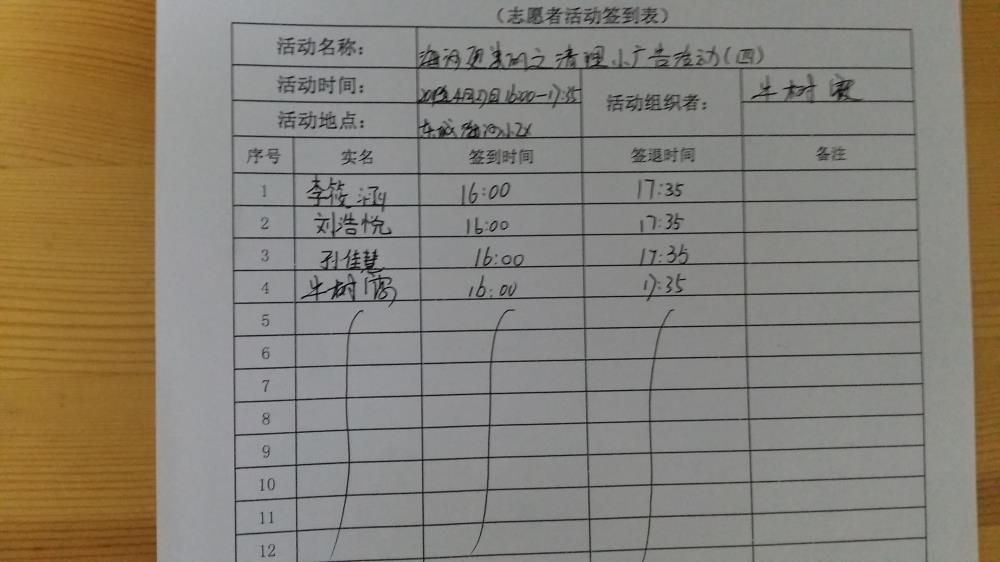 （志愿者活动签到表）
活动名称： 清理小广告活动(四)
活动时间： 4月 日16:00-17:35 活动组织者： 牛树
活动地点：
序号 实名 签到时间 签退时间 备注
1 李筱涵 16:00 17:35
2 刘浩悦 16:00 17:35
3 孙佳慧 16:00 17:35
4 牛树 16:00 17:35
5
6
7
8
9
10
11
12